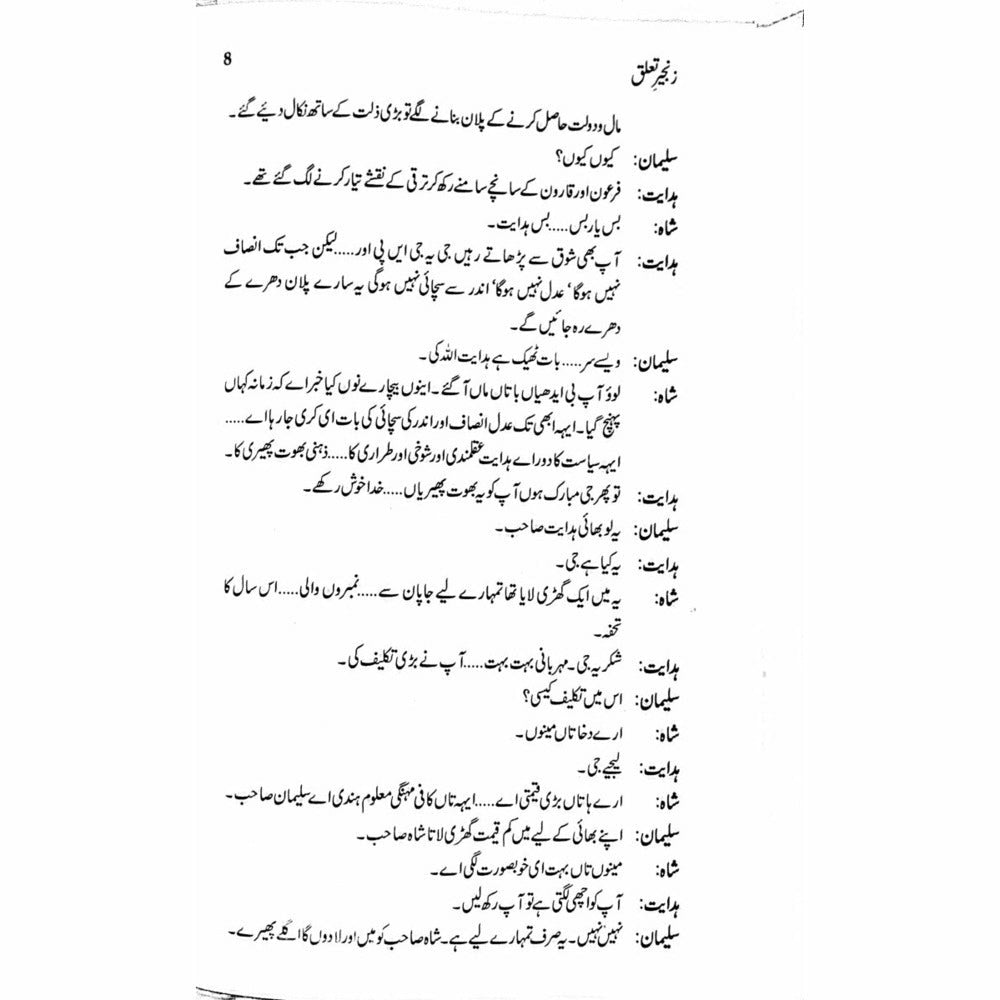 زنجیرِ تعلق
8
مال و دولت حاصل کرنے کے پلان بنانے لگے تو بڑی ذلت کے ساتھ نکال دیئے گئے۔
سلیمان: کیوں کیوں؟
ہدایت: فرعون اور قارون کے سانچے سامنے رکھ کر ترقی کے نقشے تیار کرنے لگ گئے تھے۔
شاہ: بس یار بس.....بس ہدایت۔
ہدایت: آپ بھی شوق سے پڑھاتے رہیں جی یہ جی ایس پی اور.....لیکن جب تک انصاف
نہیں ہوگا' عدل نہیں ہوگا' اندر سے سچائی نہیں ہوگی یہ سارے پلان دھرے کے
دھرے رہ جائیں گے۔
سلیمان: ویسے سر.....بات ٹھیک ہے ہدایت اللہ کی۔
شاہ: لوؤ آپ بی ایدھیاں باتاں ماں آ گئے۔ اینوں بیچارے نوں کیا خبر اے کہ زمانہ کہاں
پہنچ گیا۔ ایہہ ابھی تک عدل انصاف اور اندر کی سچائی کی بات ای کری جا رہا اے.....
ایہہ سیاست کا دور اے ہدایت عقلمندی اور شوخی اور طراری کا.....ذہنی بھوت پھیری کا۔
ہدایت: تو پھر جی مبارک ہوں آپ کو یہ بھوت پھیریاں.....خدا خوش رکھے۔
سلیمان: یہ لو بھائی ہدایت صاحب۔
ہدایت: یہ کیا ہے جی۔
شاہ: یہ میں ایک گھڑی لایا تھا تمہارے لیے جاپان سے.....نمبروں والی.....اس سال کا
تحفہ۔
ہدایت: شکریہ جی۔ مہربانی بہت بہت.....آپ نے بڑی تکلیف کی۔
سلیمان: اس میں تکلیف کیسی؟
شاہ: ارے دخا تاں مینوں۔
ہدایت: لیجیے جی۔
شاہ: ارے ہا تاں بڑی قیمتی اے.....ایہہ تاں کافی مہنگی معلوم ہندی اے سلیمان صاحب۔
سلیمان: اپنے بھائی کے لیے میں کم قیمت گھڑی لاتا شاہ صاحب۔
شاہ: مینوں تاں بہت ای خوبصورت لگی اے۔
ہدایت: آپ کو اچھی لگتی ہے تو آپ رکھ لیں۔
سلیمان: نہیں نہیں۔ یہ صرف تمہارے لیے ہے۔ شاہ صاحب کو میں اور لا دوں گا اگلے پھیرے۔